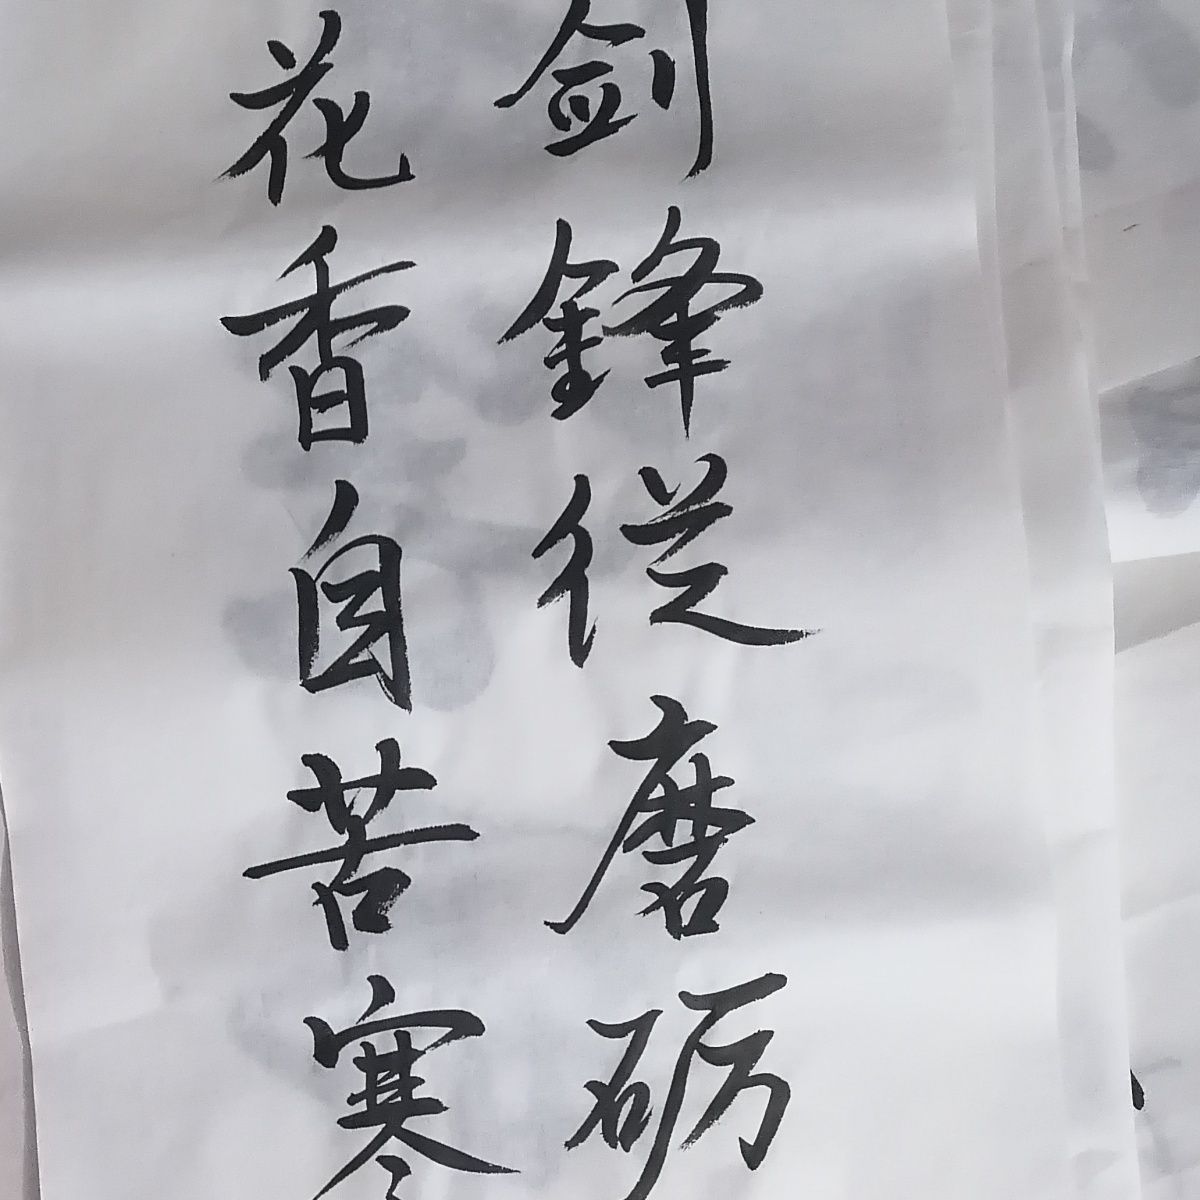 剑鋒従磨砺
花香自苦寒